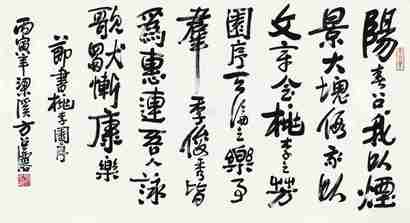 陽春召我以煙
景大塊假我以
文章會桃李之芳
園序天倫之樂事
羣季俊秀皆
爲惠連吾人詠
歌獨慚康樂
節書桃李園序
丙寅年梁溪方